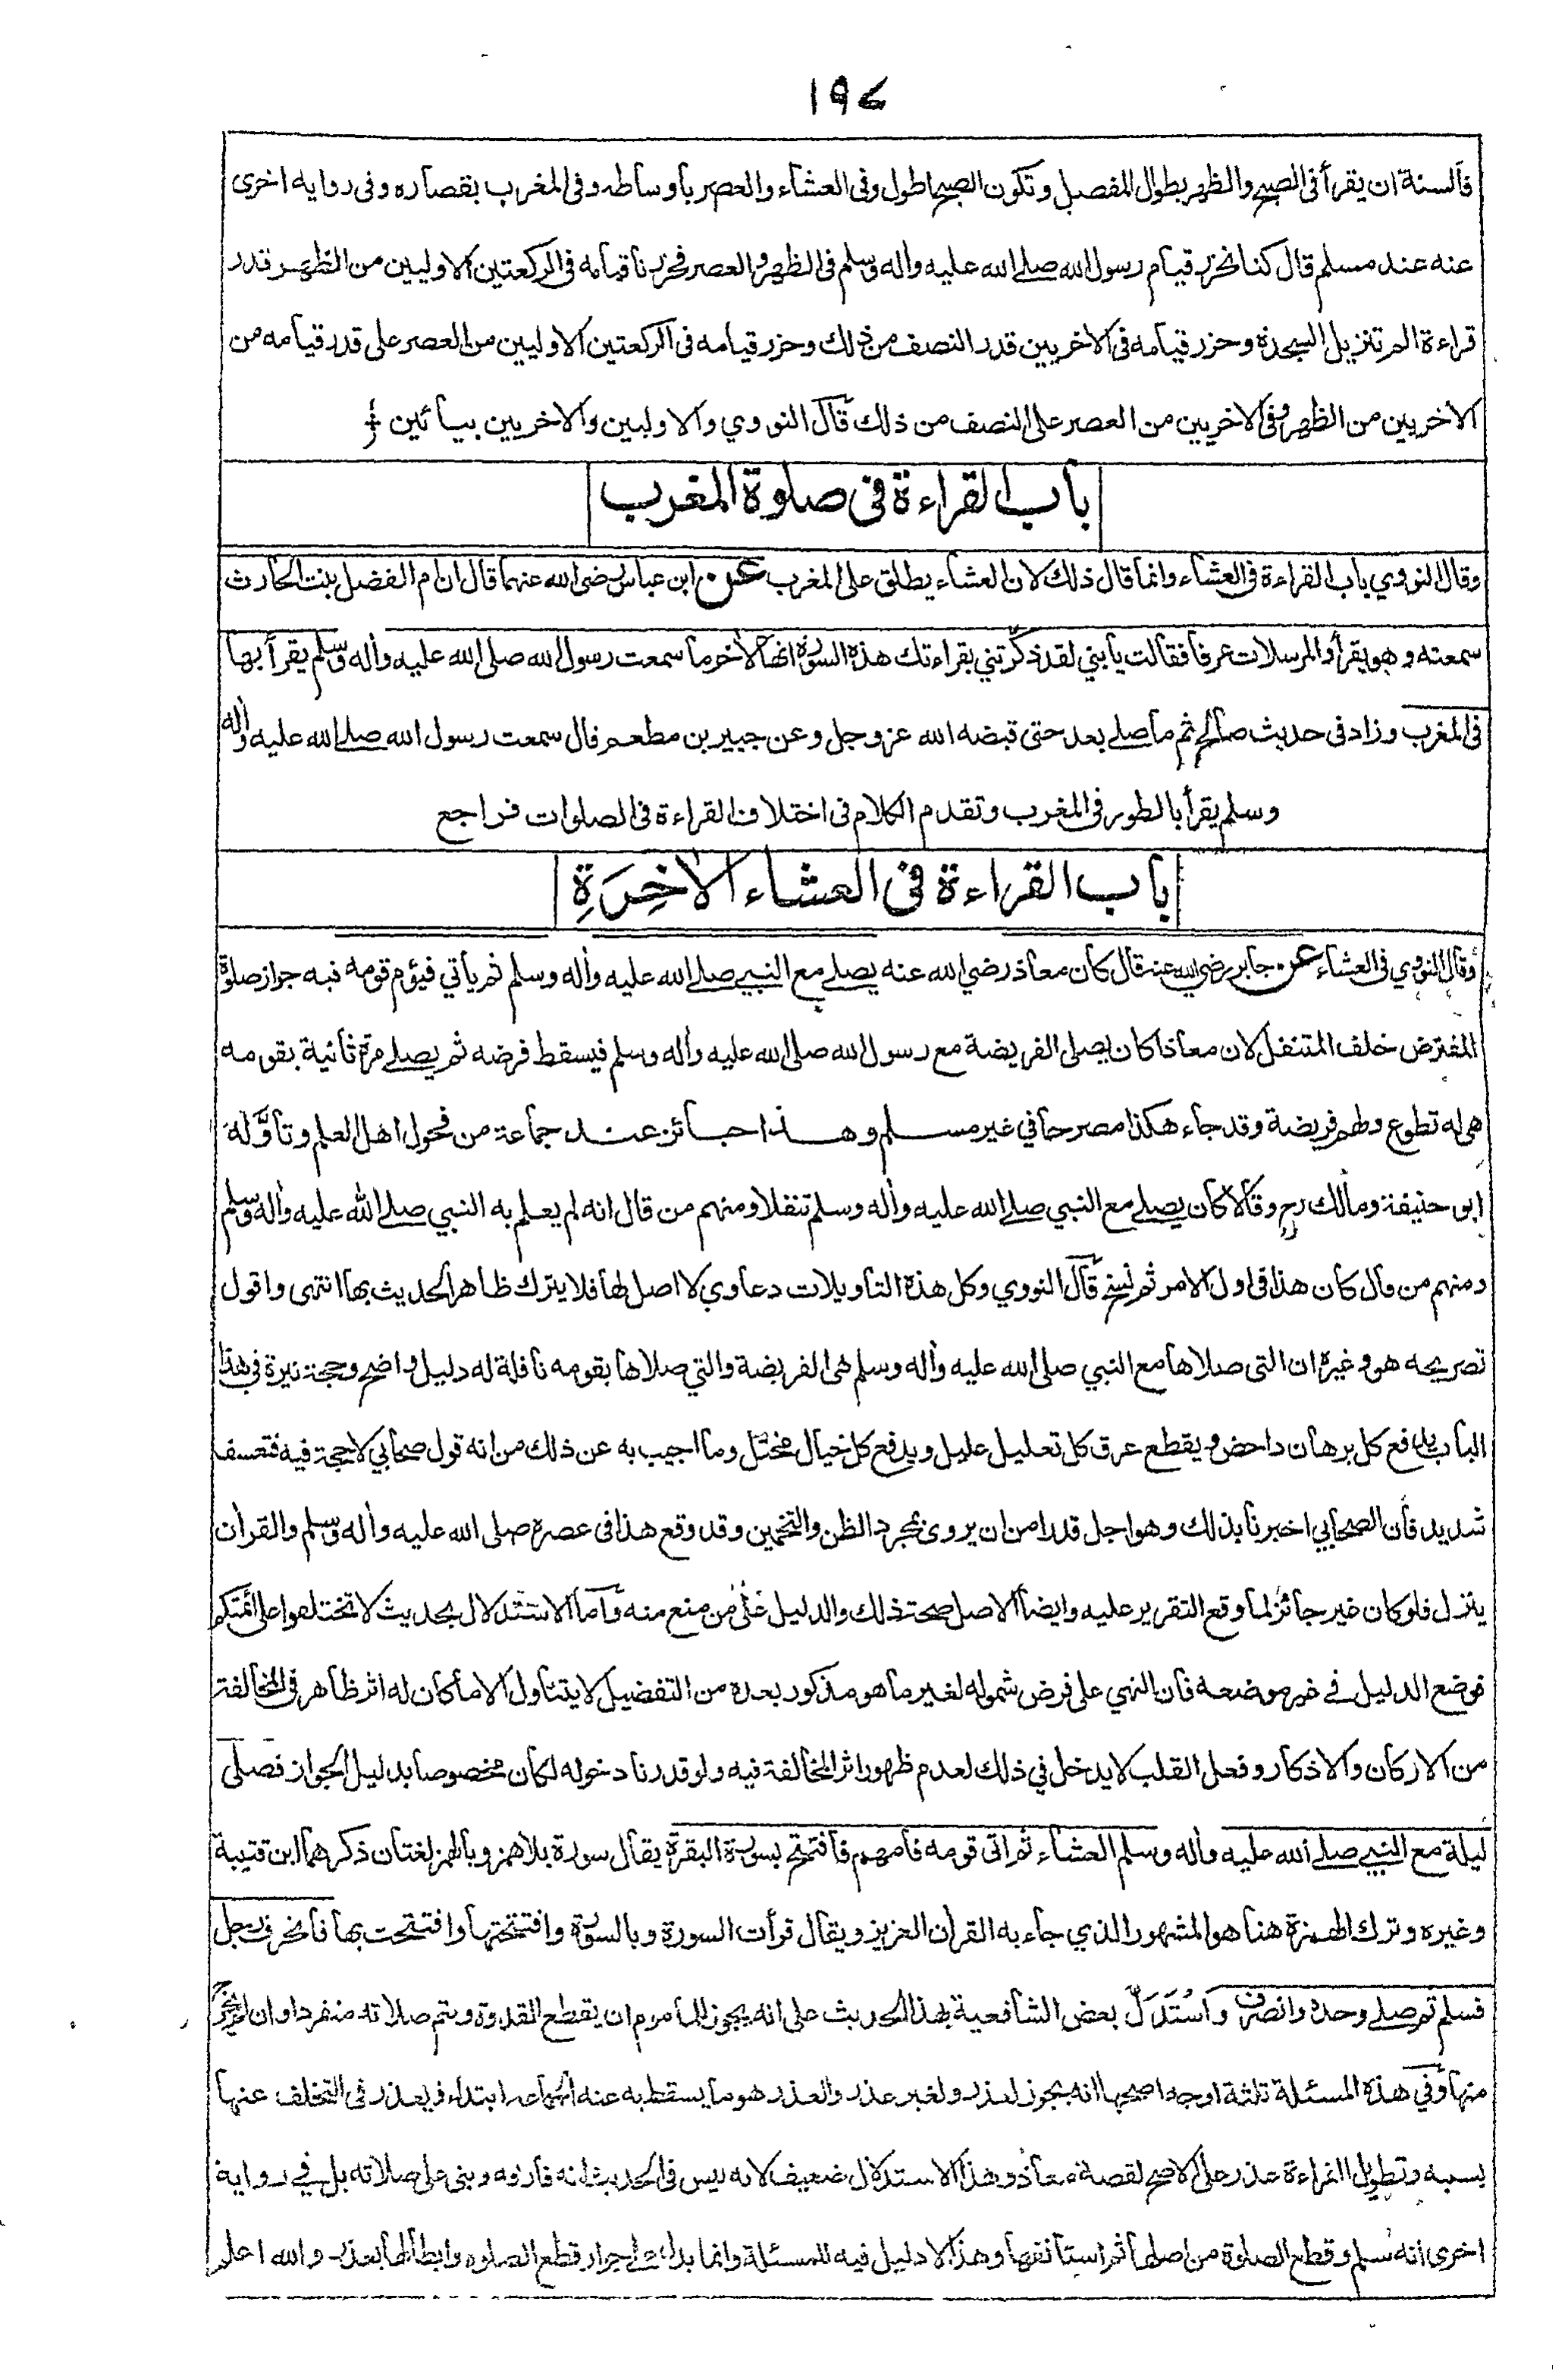 ۱۹۶
فالسنة ان يقرأ فى الصبح والظهر بطوال المفصل وتكون الصبح اطول وفى العشاء والعصر بأوساطه وفى المغرب بقصاره وفى رواية اخرى
عنه عند مسلم قال كنا نحزر قيام رسول الله صلى الله عليه وأله وسلم فى الظهر والعصر فحزرنا قيامه فى الركعتين الاوليين من الظهر قدر
قراءة الم تنزيل السجدة وحزر قيامه فى الاخريين قدر النصف من ذلك وحزر قيامه فى الركعتين الاوليين من العصر على قدر قيامه من
الاخريين من الظهر وفى الاخريين من العصر على النصف من ذلك قال النووي والاوليين والاخريين بيائين
باب القراءة فى صلوة المغرب
وقال النووي باب القراءة فى العشاء وانما قال ذلك لان العشاء يطلق على المغرب عن ابن عباس رضى الله عنهما قال ان ام الفضل بنت الحارث
سمعته وهو يقرأ والمرسلات عرفا فقالت يا بني لقد ذكرتني بقراءتك هذه السورة انها لأخر ما سمعت رسول الله صلى الله عليه وأله وسلم يقرأ بها
فى المغرب وزاد فى حديث صالح ثم ما صلى بعد حتى قبضه الله عز وجل وعن جبير بن مطعم قال سمعت رسول الله صلى الله عليه وأله
وسلم يقرأ بالطور فى المغرب وتقدم الكلام فى اختلاف القراءة فى الصلوات فراجع
باب القراءة فى العشاء الاٰخِرَةِ
وقال النووي فى العشاء عن جابر رضي الله عنه قال كان معاذ رضي الله عنه يصلى مع النبي صلى الله عليه وأله وسلم ثم يأتي فيؤم قومه فيه جواز صلوة
المفترض خلف المتنفل لان معاذا كان يصلى الفريضة مع رسول الله صلى الله عليه وأله وسلم فيسقط فرضه ثم يصلى مرة ثانية بقومه
هى له تطوع ولهم فريضة وقد جاء هكذا مصرحا في غير مسلم وهذا جائز عند جماعة من فحول اهل العلم وتأوَّله
ابو حنيفة ومالك رح وقالا كان يصلى مع النبي صلى الله عليه وأله وسلم تنفلا ومنهم من قال انه لم يعلم به النبي صلى الله عليه وأله وسلم
ومنهم من قال كان هذا فى اول الامر ثم نسخ قال النووي وكل هذه التأويلات دعاوي لا اصل لها فلا يترك ظاهر الحديث بها انتهى واقول
تصريحه هو وغيره ان التى صلاها مع النبي صلى الله عليه وأله وسلم هى الفريضة والتي صلاها بقومه نافلة له دليل واضح وحجة نيرة فى هذا
الباب يدافع كل برهان داحض ويقطع عرق كل تعليل عليل ويدفع كل خيال مختل وما اجيب به عن ذلك من انه قول صحابي لا حجة فيه فتعسف
شديد فان الصحابي اخبرنا بذلك وهو اجل قدرا من ان يروى بمجرد الظن والتخمين وقد وقع هذا فى عصره صلى الله عليه وأله وسلم والقرأن
ينزل فلو كان غير جائز لما وقع التقرير عليه وايضا الاصل صحة ذلك والدليل على من منع منه وأما الاستدلال بحديث لا تختلفوا على ائمتكم
فوضع الدليل في غير موضعه فان النهي على فرض شموله لغير ما هو مذكور بعده من التفضيل لا يتناول الا ما كان له اثر ظاهر فى المخالفة
من الاركان والاذكار وفعل القلب لا يدخل في ذلك لعدم ظهور اثر المخالفة فيه ولو قدرنا دخوله لكان مخصوصا بدليل الجواز فصلى
ليلة مع النبي صلى الله عليه وأله وسلم العشاء ثم اتى قومه فأمهم فافتتح بسورة البقرة يقال سورة بلا همز وبالهمز لغتان ذكرهما ابن قتيبة
وغيره وترك الهمزة هنا هو المشهور الذي جاء به القرأن العزيز ويقال قرأت السورة وبالسورة وافتتحتها وافتتحت بها فانحرف رجل
فسلم ثم صلى وحده وانصرف واستدل بعض الشافعية بهذا الحديث على انه يجوز للمأموم ان يقطع القدوة ويتم صلاته منفردا وان لم يخرج
منها وفي هذه المسئلة ثلثة اوجه اصحها انه يجوز لعذر ولغير عذر والعذر هو ما يسقط به عنه الجماعة ابتداء ويعذر فى التخلف عنها
بسببه وتطويل القراءة عذر على الاصح لقصة معاذ وهذا الاستدلال ضعيف لانه ليس فى الحديث انه فارقه وبنى على صلاته بل في رواية
اخرى انه سلم وقطع الصلوة من اصلها ثم استأنفها وهذا لا دليل فيه للمسئلة وانما يدل على جواز قطع الصلوة وابطالها بعذر والله اعلم